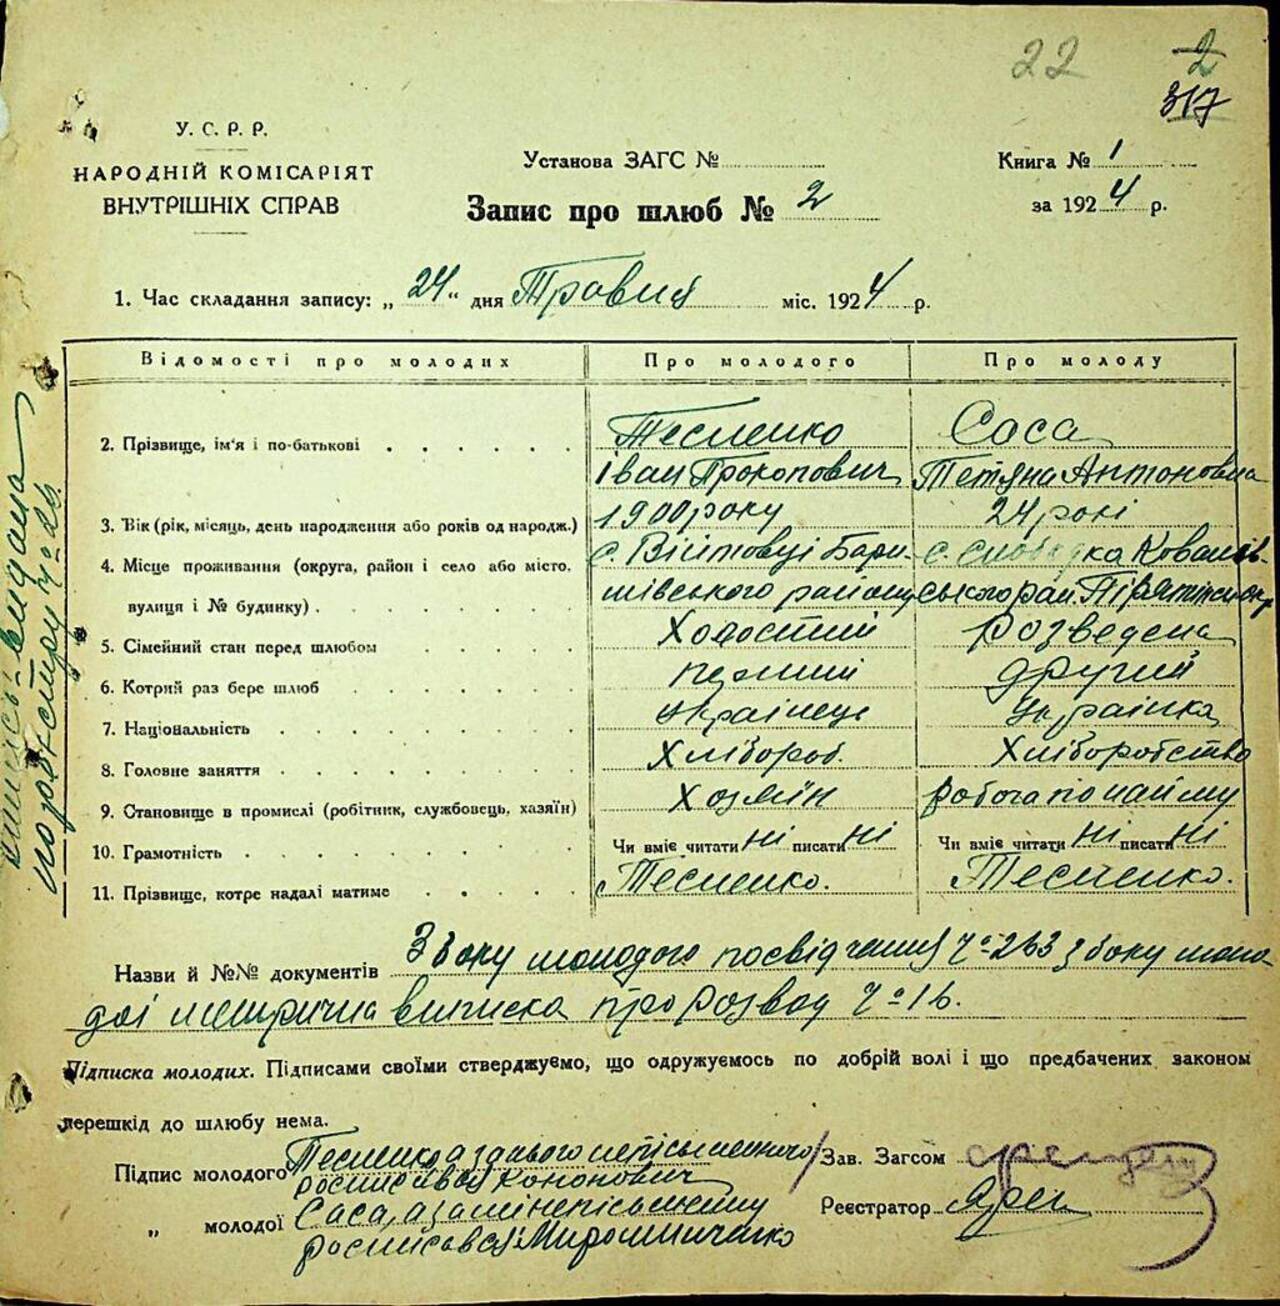 22
2
317
У. С. Р. Р.
НАРОДНІЙ КОМІСАРІЯТ
ВНУТРІШНІХ СПРАВ
Установа ЗАГС №
Запис про шлюб № 2
Книга № 1
за 1924 р.
1. Час складання запису: „24“ дня Травня міс. 1924 р.
Відомості про молодих Про молодого Про молоду
2. Прізвище, ім'я і по-батькові Тесленко Саса
Іван Прокопович Тетяна Антоновна
3. Вік (рік, місяць, день народження або років од народж.) 1900 року 24 роки
4. Місце проживання (округа, район і село або місто, с. Війтовці Бари- с. Слобідка Ковалів-
вулиця і № будинку) шівського району ського рай. Пірятінськ окр
5. Сімейний стан перед шлюбом Холостий Розведена
6. Котрий раз бере шлюб перший другий
7. Національність Украінець Украінка
8. Головне заняття Хлібороб. Хліборобство
9. Становище в промислі (робітник, службовець, хазяїн) Хозяїн робоча по найму
10. Грамотність Чи вміє читати ні писати ні Чи вміє читати ні писати ні
11. Прізвище, котре надалі матиме Тесленко. Тесленко.
Назви й №№ документів З боку молодого посвідчення Ч° 263 з боку моло
доі метрична виписка про розвод Ч° 16.
Підписка молодих. Підписами своїми стверджуємо, що одружуємось по добрій волі і що предбачених законом
перешкід до шлюбу нема.
Підпис молодого Тесленко, а за нього непісьменного
росписався Кононович
Зав. Загсом
„ молодої Саса, а за неі непісьменну
росписався Мирошниченко
Реєстратор
выпись видана
по реєстру Ч° 26